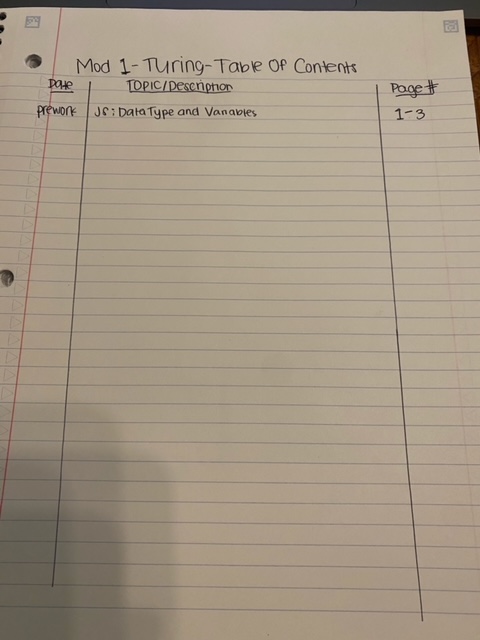 Mod 1 - Turing - Table Of Contents
Date TOPIC/Description Page #
prework JS: Data Type and Variables 1-3